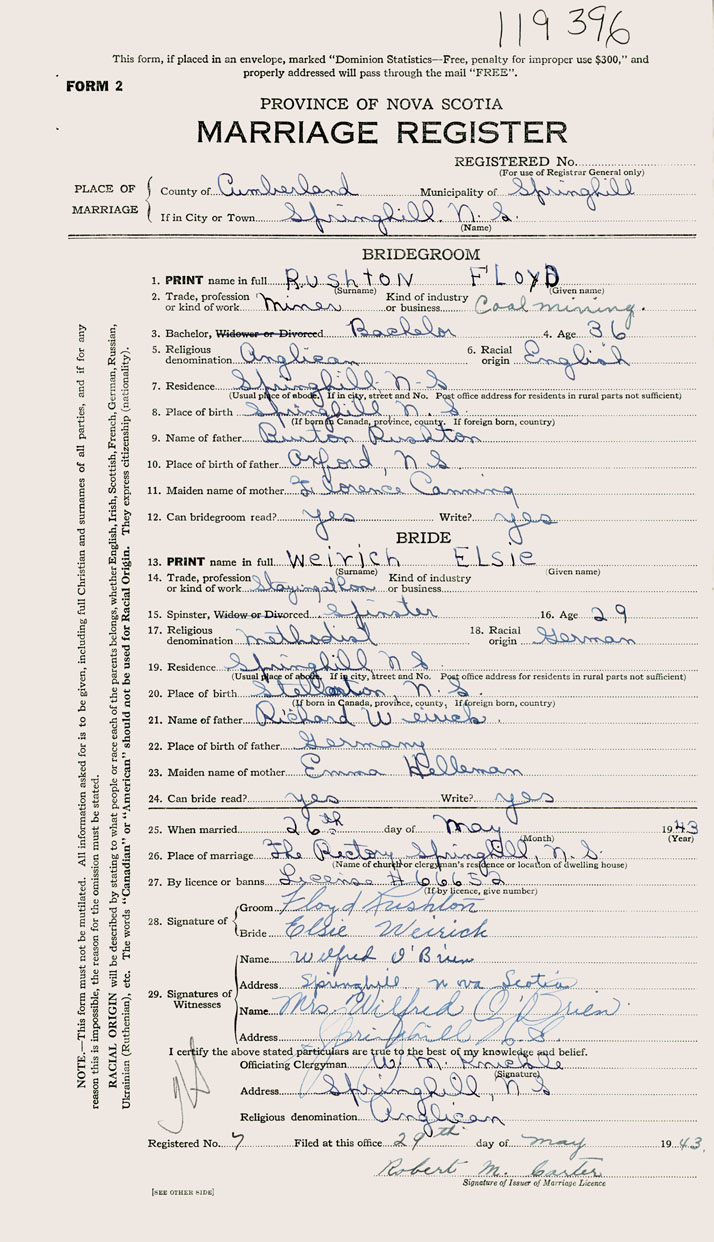 119 396
This form, if placed in an envelope, marked "Dominion Statistics—Free, penalty for improper use $300," and
properly addressed will pass through the mail "FREE".
FORM 2
PROVINCE OF NOVA SCOTIA
MARRIAGE REGISTER
REGISTERED No.
(For use of Registrar General only)
PLACE OF MARRIAGE
County of Cumberland Municipality of Springhill
If in City or Town Springhill. N. S.
(Name)
BRIDEGROOM
1. PRINT name in full RUSHTON FLOYD
(Surname) (Given name)
2. Trade, profession or kind of work Miner Kind of industry or business Coal mining.
3. Bachelor, Widower or Divorced Bachelor 4. Age 36
5. Religious denomination Anglican 6. Racial origin English
7. Residence Springhill N-S
(Usual place of abode. If in city, street and No. Post office address for residents in rural parts not sufficient)
8. Place of birth Springhill N. S.
(If born in Canada, province, county. If foreign born, country)
9. Name of father Burton Rushton
10. Place of birth of father Oxford, N S.
11. Maiden name of mother Florence Canning
12. Can bridegroom read? yes Write? yes
BRIDE
13. PRINT name in full Weirich ELSIE
(Surname) (Given name)
14. Trade, profession or kind of work Kind of industry or business
15. Spinster, Widow or Divorced Spinster 16. Age 29
17. Religious denomination methodist 18. Racial origin German
19. Residence Springhill N S
(Usual place of abode. If in city, street and No. Post office address for residents in rural parts not sufficient)
20. Place of birth Stellarton, N. S.
(If born in Canada, province, county, If foreign born, country)
21. Name of father Richard
22. Place of birth of father Germany
23. Maiden name of mother Emma Helleman
24. Can bride read? yes Write? yes
25. When married 26th day of May 1943
(Month) (Year)
26. Place of marriage The Rectory Springhill, N. S.
(Name of church or clergyman's residence or location of dwelling house)
27. By licence or banns License # 66652
(If by licence, give number)
28. Signature of
Groom Floyd Rushton
Bride Elsie Weirich
29. Signatures of Witnesses
Name Wilfred O'Brien
Address Springhill nova Scotia
Name Mrs Wilfred O'Brien
Address Springhill N.S.
I certify the above stated particulars are true to the best of my knowledge and belief.
Officiating Clergyman W. M. Knickle
(Signature)
Address Springhill, N S
Religious denomination Anglican
Registered No. 7 Filed at this office 29th day of may 1943.
Robert M. Carter
Signature of Issuer of Marriage Licence
[SEE OTHER SIDE]
NOTE.—This form must not be mutilated. All information asked for is to be given, including full Christian and surnames of all parties, and if for any
reason this is impossible, the reason for the omission must be stated.
RACIAL ORIGIN will be described by stating to what people or race each of the parents belongs, whether English, Irish, Scottish, French, German, Russian,
Ukrainian (Ruthenian), etc. The words "Canadian" or "American" should not be used for Racial Origin. They express citizenship (nationality).